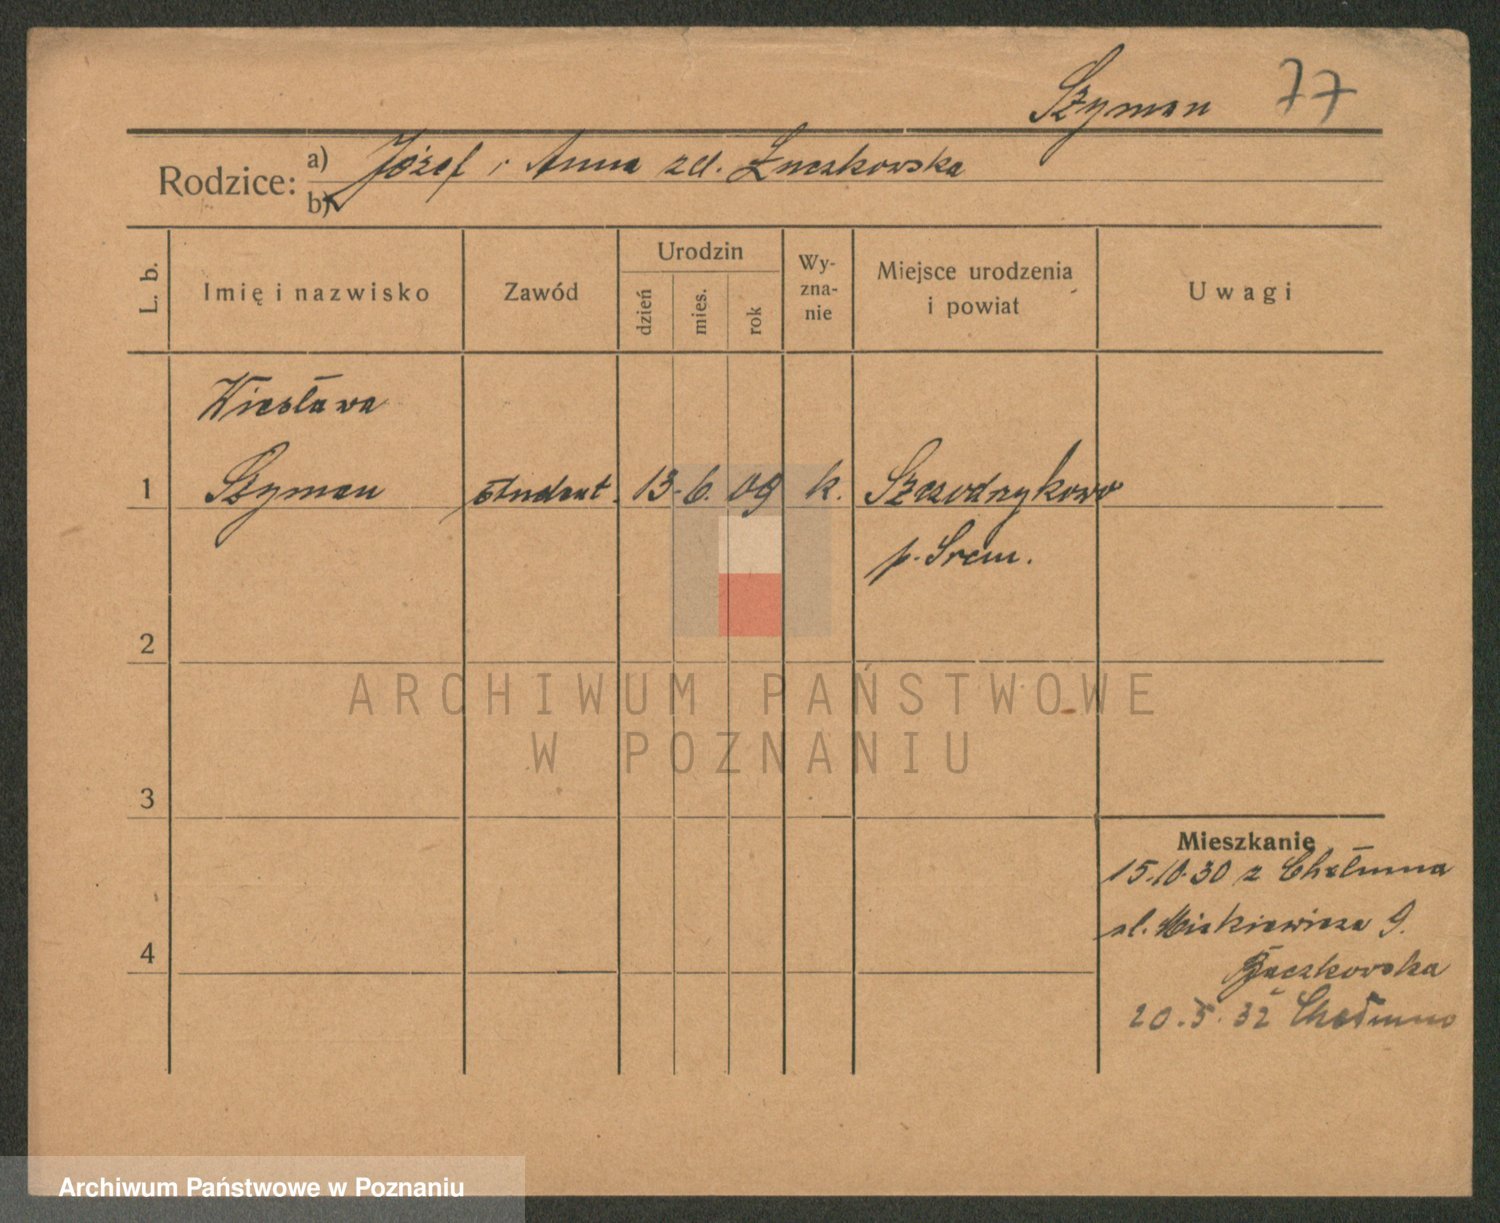 Szyman 77
Rodzice: a) Józef i Anna zd. Łuczkowska
b)
L. b.
Imię i nazwisko
Zawód
Urodzin
dzień
mies.
rok
Wy-
zna-
nie
Miejsce urodzenia
i powiat
Uwagi
Wiesława
1 Szyman student. 13. 6. 09 k. Szczodrzykowo
p. Srem.
2
ARCHIWUM PAŃSTWOWE
W POZNANIU
3
Mieszkanie
15.10.30 z Chełmna
4
ul. Mickiewicza 9.
20.5.32 Chełmno
Archiwum Państwowe w Poznaniu